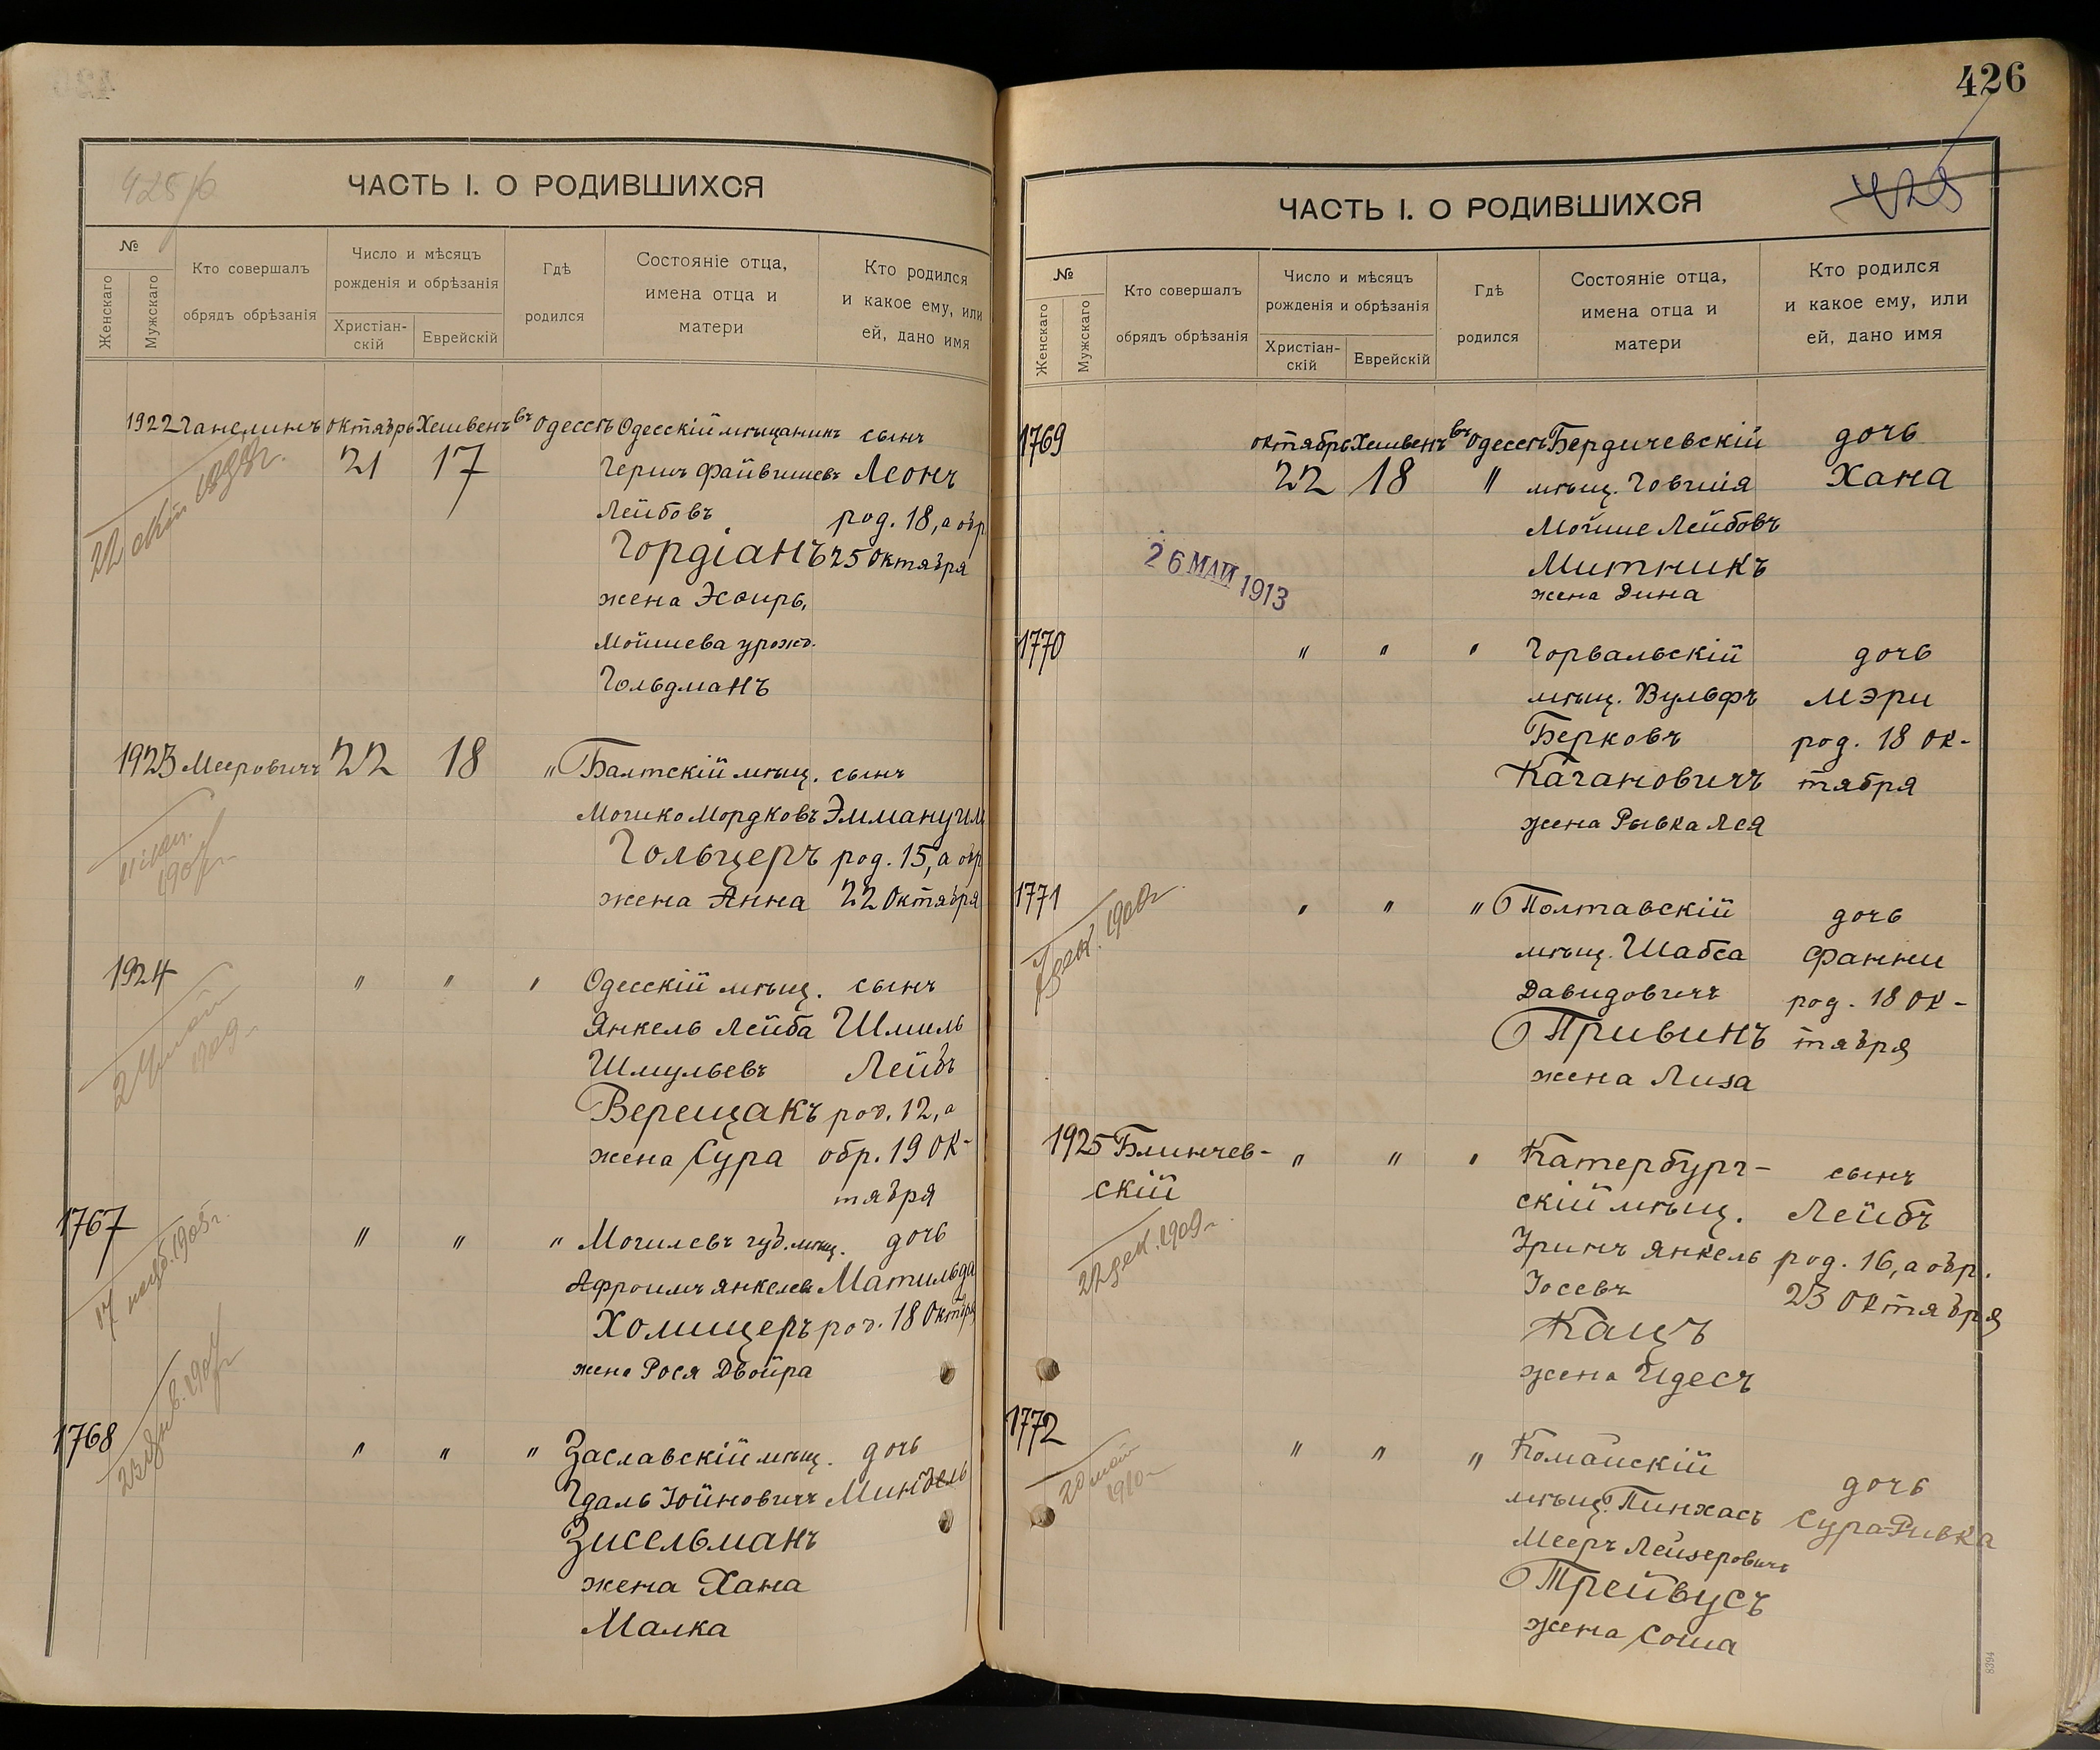 426
ЧАСТЬ I. О РОДИВШИХСЯ
№
Женскаго
Мужскаго
Кто совершалъ
обрядъ обрѣзанія
Число и мѣсяцъ
рожденія и обрѣзанія
Христіан-
скій
Еврейскій
Гдѣ
родился
Состояніе отца,
имена отца и
матери
Кто родился
и какое ему, или
ей, дано имя
1922 Ганелинъ октябрь Хешвенъ въ Одессѣ Одесскій мѣщанинъ сынъ
21 17 Гершъ Файвишевъ Леонъ
Лейбовъ род. 18, а обр
Гордіанъ 25 Октября
жена Эсѳирь,
Мойшева урожд.
Гольдманъ
1923 Мееровичъ 22 18 " Балтскій мѣщ. сынъ
Мошко Мордковъ Эммануил
Гольцеръ род. 15, а обр
жена Анна 22 Октября
1924 " " " Одесскій мѣщ. сынъ
24 мая
1909 г
Янкель Лейба Шмиль
Шмульевъ Лейбъ
Верещакъ род. 12, а
жена Сура обр. 19 Ок-
тября
1767 " " " Могилевъ губ. мѣщ. дочь
Афроимъ Янкелев Матильда
Хомицеръ род. 18 Октября
жена Рося Двойра
1768 " " " Заславскій мѣщ. дочь
Гдаль Іойновичъ Миндель
Зисельманъ
жена Хана
Малка
ЧАСТЬ I. О РОДИВШИХСЯ
425
№
Женскаго
Мужскаго
Кто совершалъ
обрядъ обрѣзанія
Число и мѣсяцъ
рожденія и обрѣзанія
Христіан-
скій
Еврейскій
Гдѣ
родился
Состояніе отца,
имена отца и
матери
Кто родился
и какое ему, или
ей, дано имя
1769 октябрь Хешвенъ въ Одессѣ Бердичевскій дочь
22 18 " мѣщ. Говшія Хана
Мойше Лейбовъ
26 МАЙ 1913
Митникъ
жена Дина
1770 " " " Горвальскій дочь
мѣщ. Вульфъ Мэри
Берковъ род. 18 Ок-
Кагановичъ тября
жена Рывка Лея
1771 " " " Полтавскій дочь
мѣщ. Шабса Фанни
Давидовичъ род. 18 Ок-
Привинъ тября
жена Лиза
1925 Блинчев- " " " Катербург- сынъ
скій скій мѣщ. Лейбъ
22 дек. 1909 г
Янкель род. 16, а обр.
Іосевъ 23 Октября
Кацъ
жена Идесъ
1772 " " " Комайскій дочь
20 мая
1910 г
мѣщ. Пинхасъ Сура-Ривка
Мееръ Лейзеровичъ
Трейвусъ
жена Соша
8394